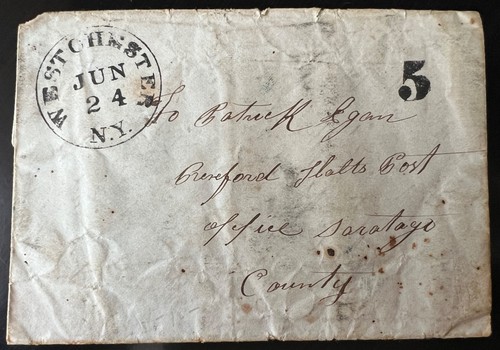 WESTCHESTER N.Y.
JUN
24
5
To Patrick Egan
Crereford Halts Post
office Saratago
County